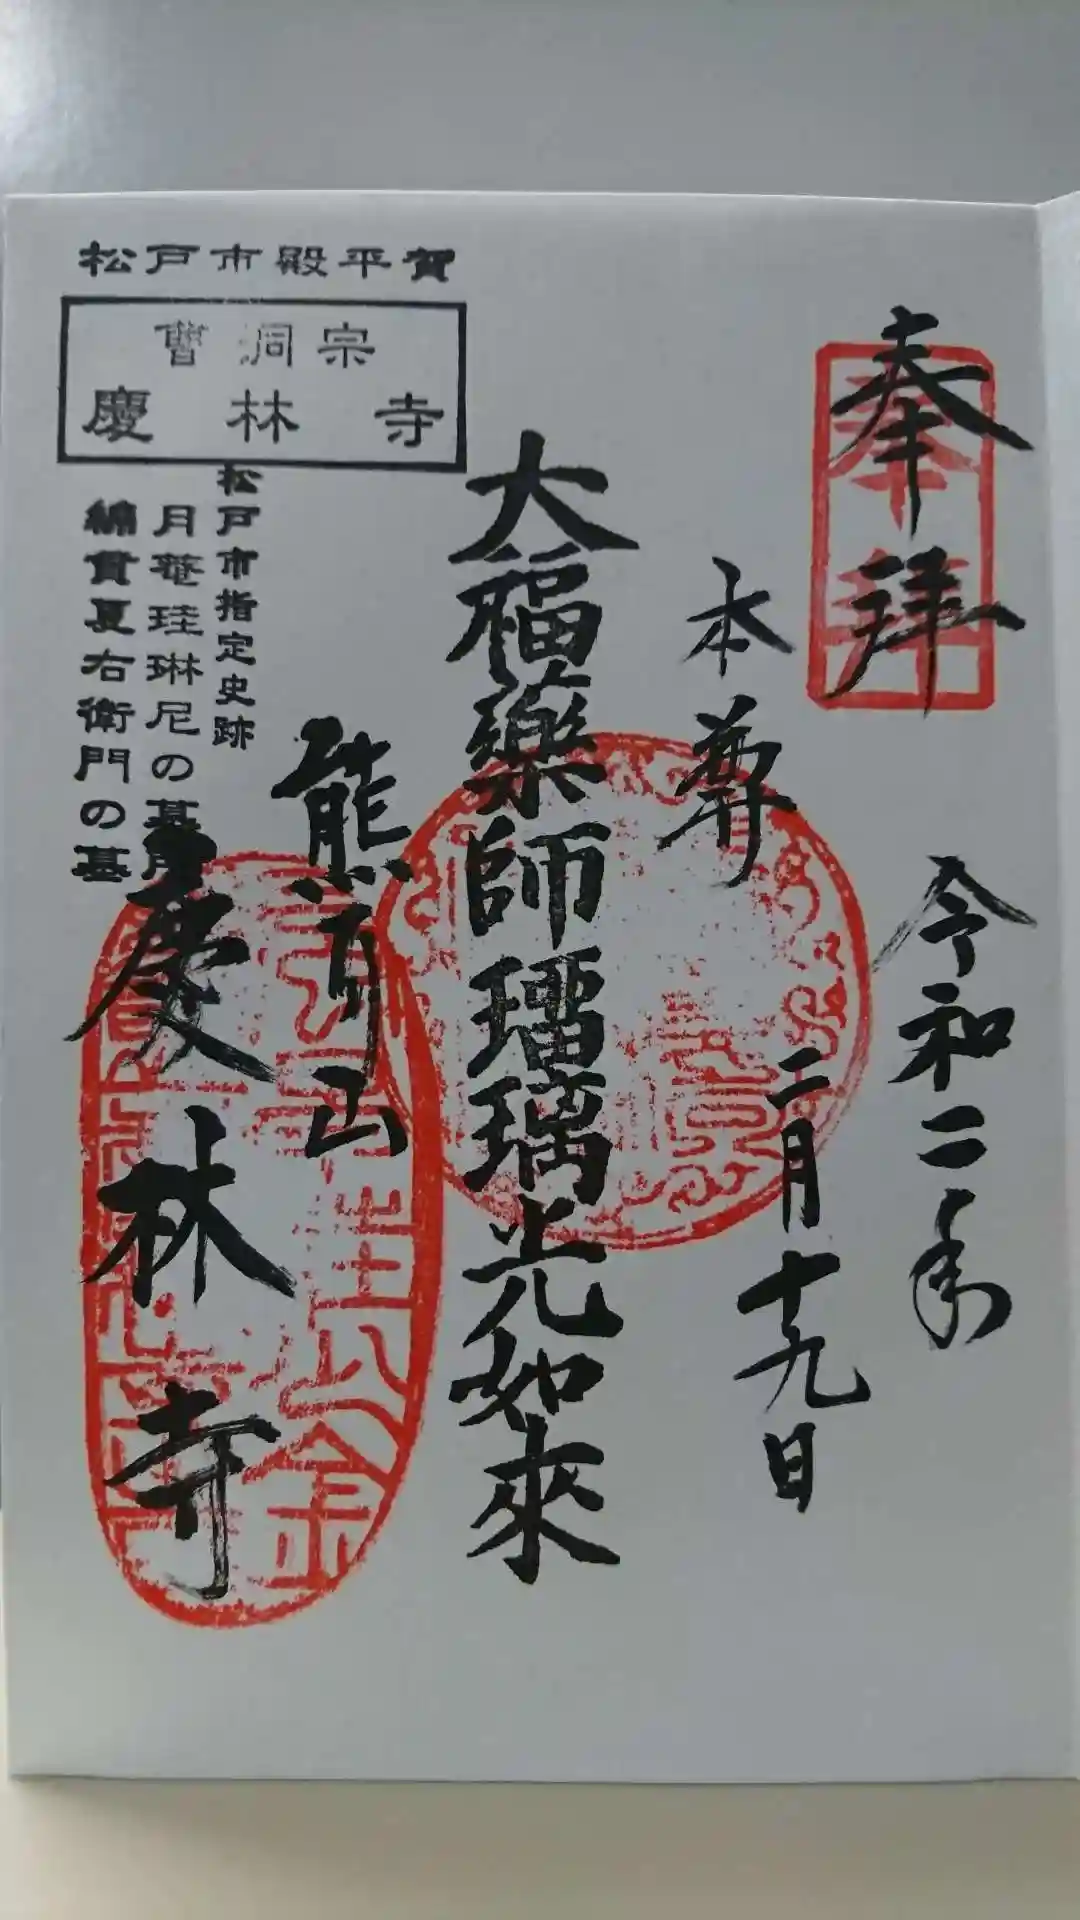 奉拝
令和二年
二月十九日
本尊
大福薬師瑠璃光如来
熊耳山
慶林寺
松戸市殿平賀
曹洞宗
慶林寺
松戸市指定史跡
月菴珪琳尼の墓所
綿貫夏右衛門の墓